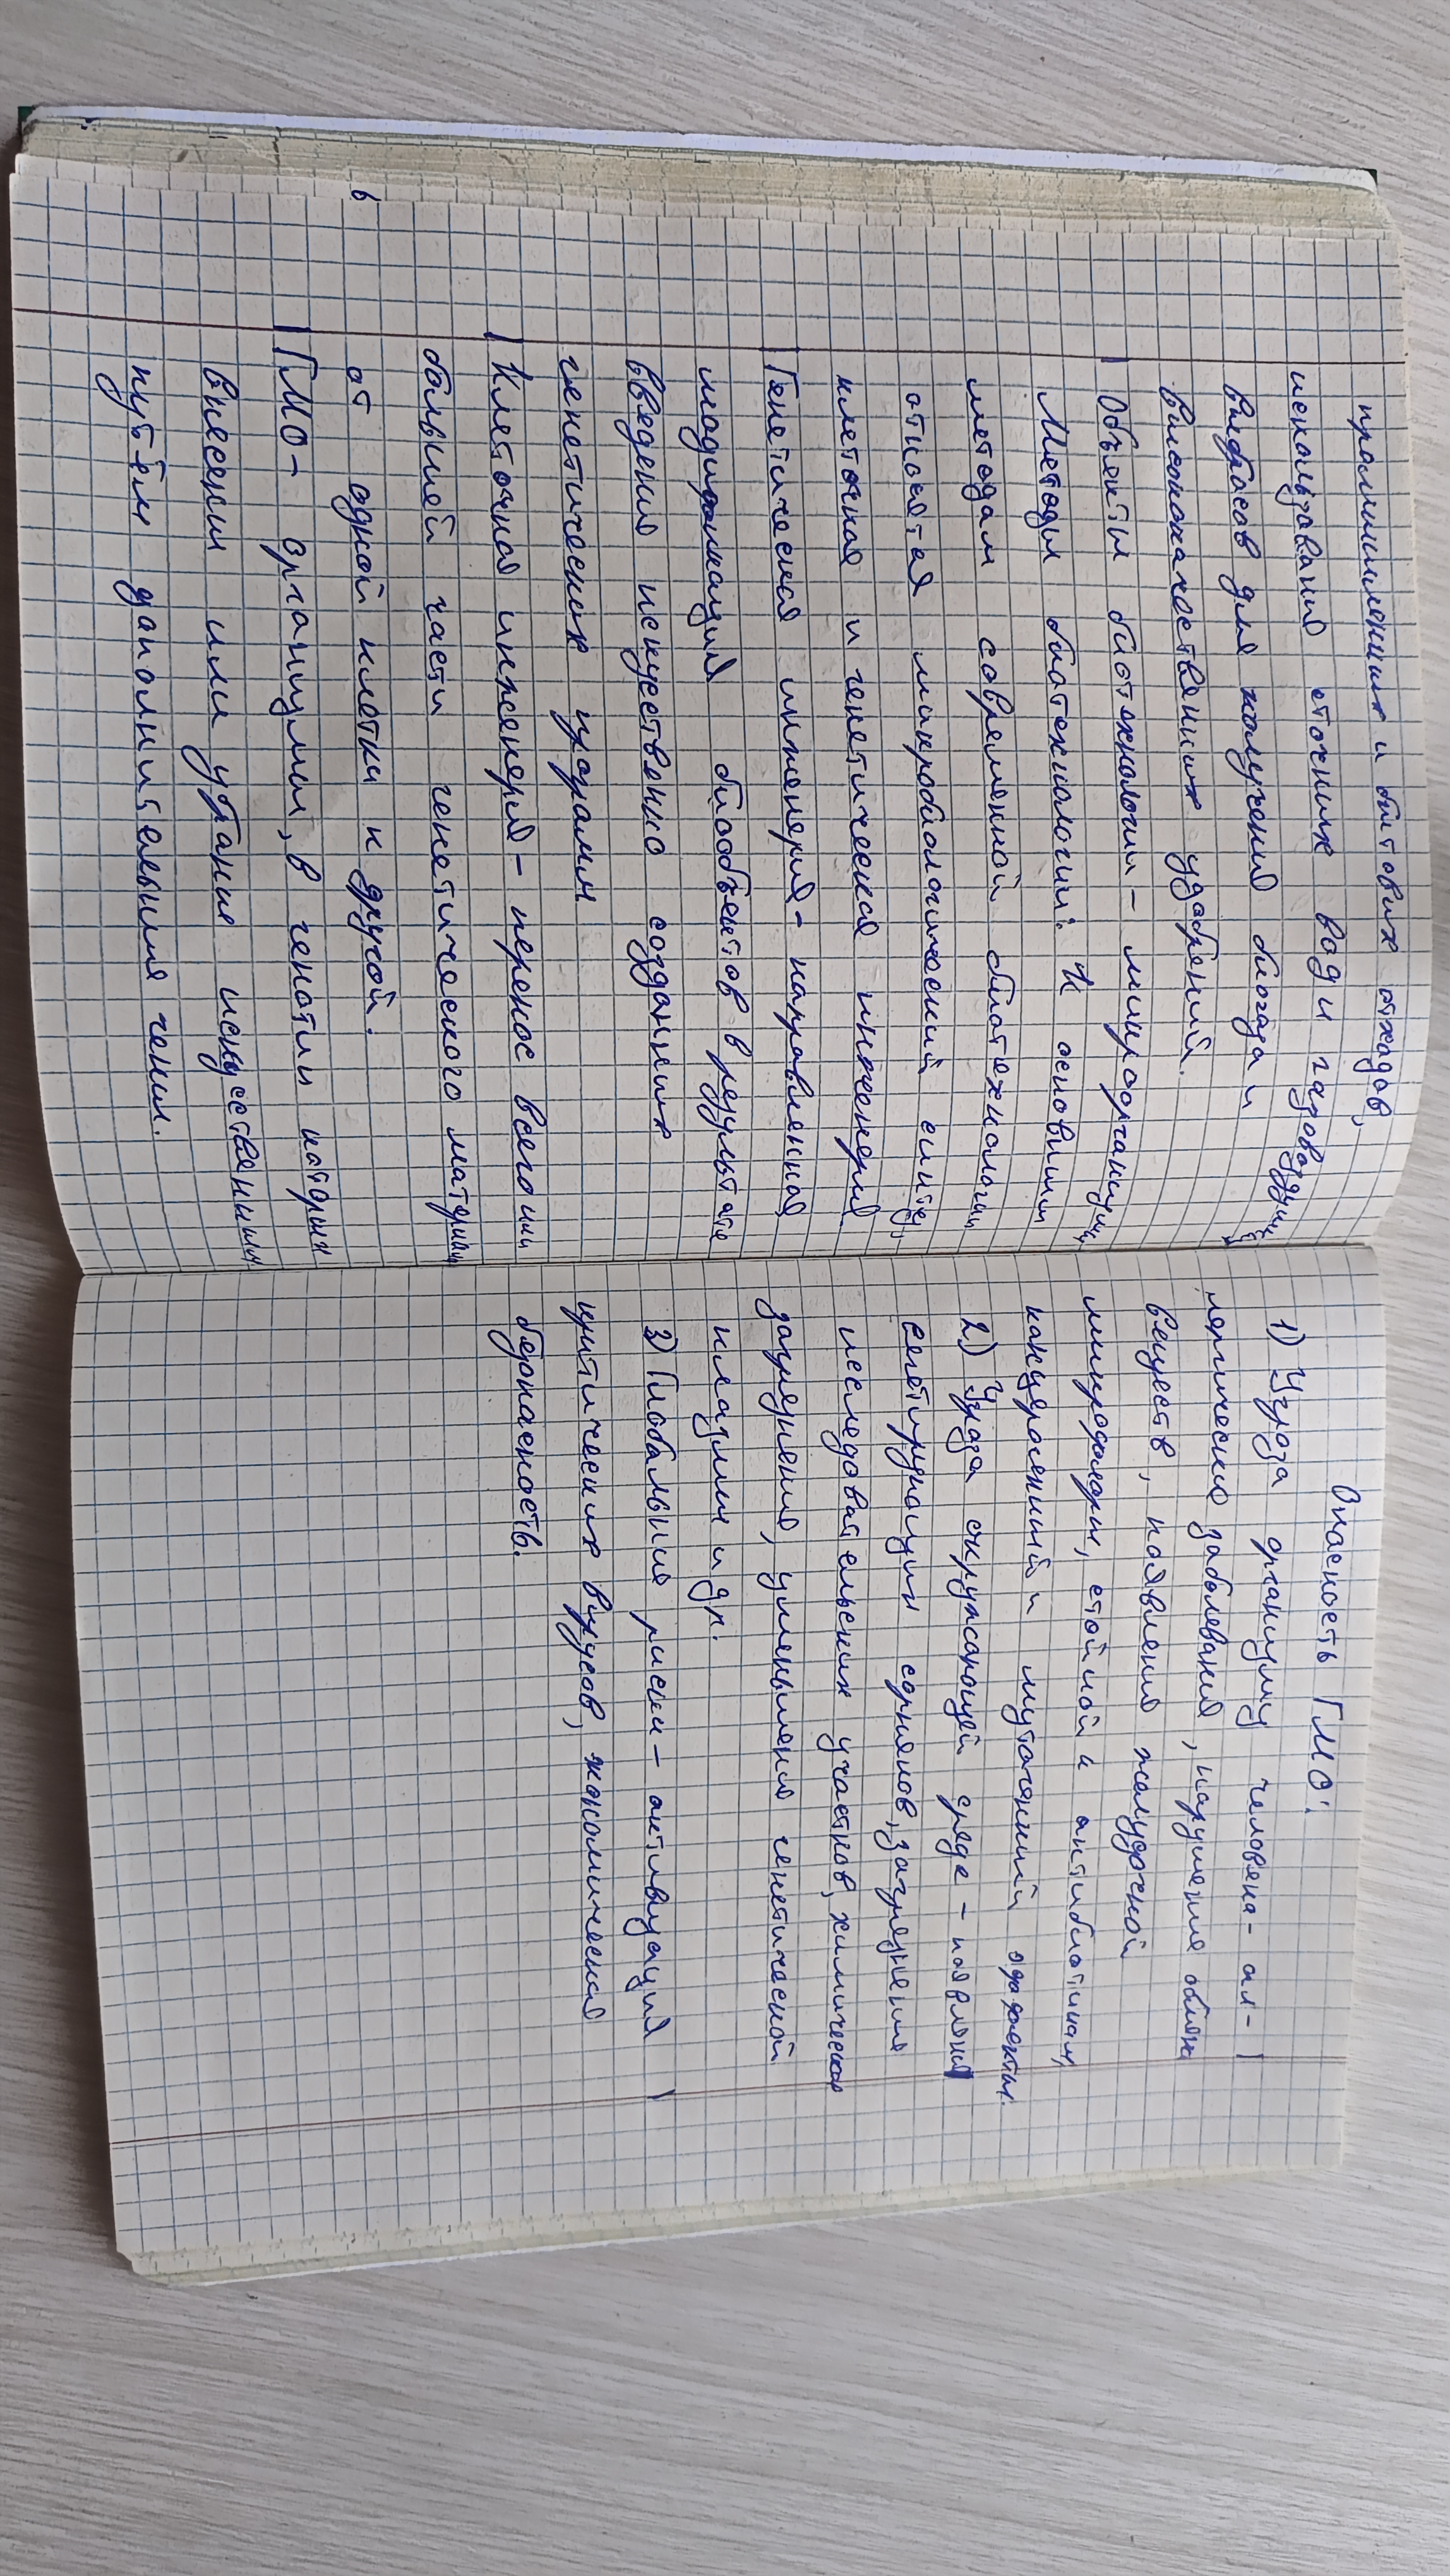 промышленных и бытовых отходов,
использование сточных вод и газовоздушн
выбросов для получения биогаза и
высококачественных удобрений.
Объекты биотехнологии - микроорганизмы
Методы биотехнологии: К основным
методам современной биотехнологии
относится микробиологический синтез,
клеточная и генетическая инженерия
Генетическая инженерия - направленная
модификация биообъектов в результате
введения искуствено созданных
генетических программ
Клеточная инженерия - перенос всего или
большей части генетического материала
от одной клетки к другой.
ГМО - организмы, в генотип которых
внесены или убраные искусственным
путём дополнительные гены.
Опасность ГМО:
1) Угроза организму человека - ал-
лергические заболевания, нарушение обмена
веществ, появление желудочной
микрофлоры, стойкой к антибиотикам,
канцерогенный и мутагенный эффекты.
2) Угроза окружающей среде - появление
вегетирующих сорняков, загрязнение
исследовательских участков, химическое
загрязнение, уменьшение генетической
плазмы и др.
3) Глобальные риски - активизация
критических вирусов, экономическая
безопасность.